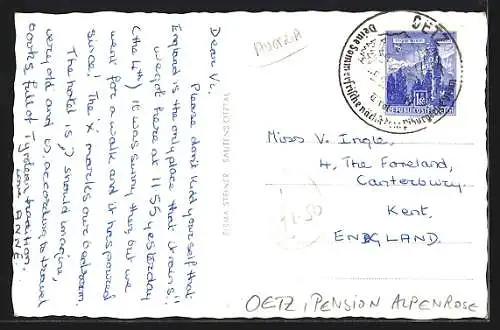 Dear Vi,
Please don't kidd yourself that
England is the only place that it rains!!
We got here at 11.55 yesterday
(the 4th) it was sunny then, but we
went for a walk and it has poured
since. The x marks our bedroom.
The hotel is, I should imagine,
very old and is, according to travel
books full of Tyrolean tradition.
love ANNE.
AUSTRIA
OETZ
Deine Sommerfrische nächst
REPUBLIK ÖSTERREICH
Miss V. Ingle,
4, The Foreland,
Canterbury
Kent,
ENGLAND.
12.50
OETZ, PENSION ALPENROSE